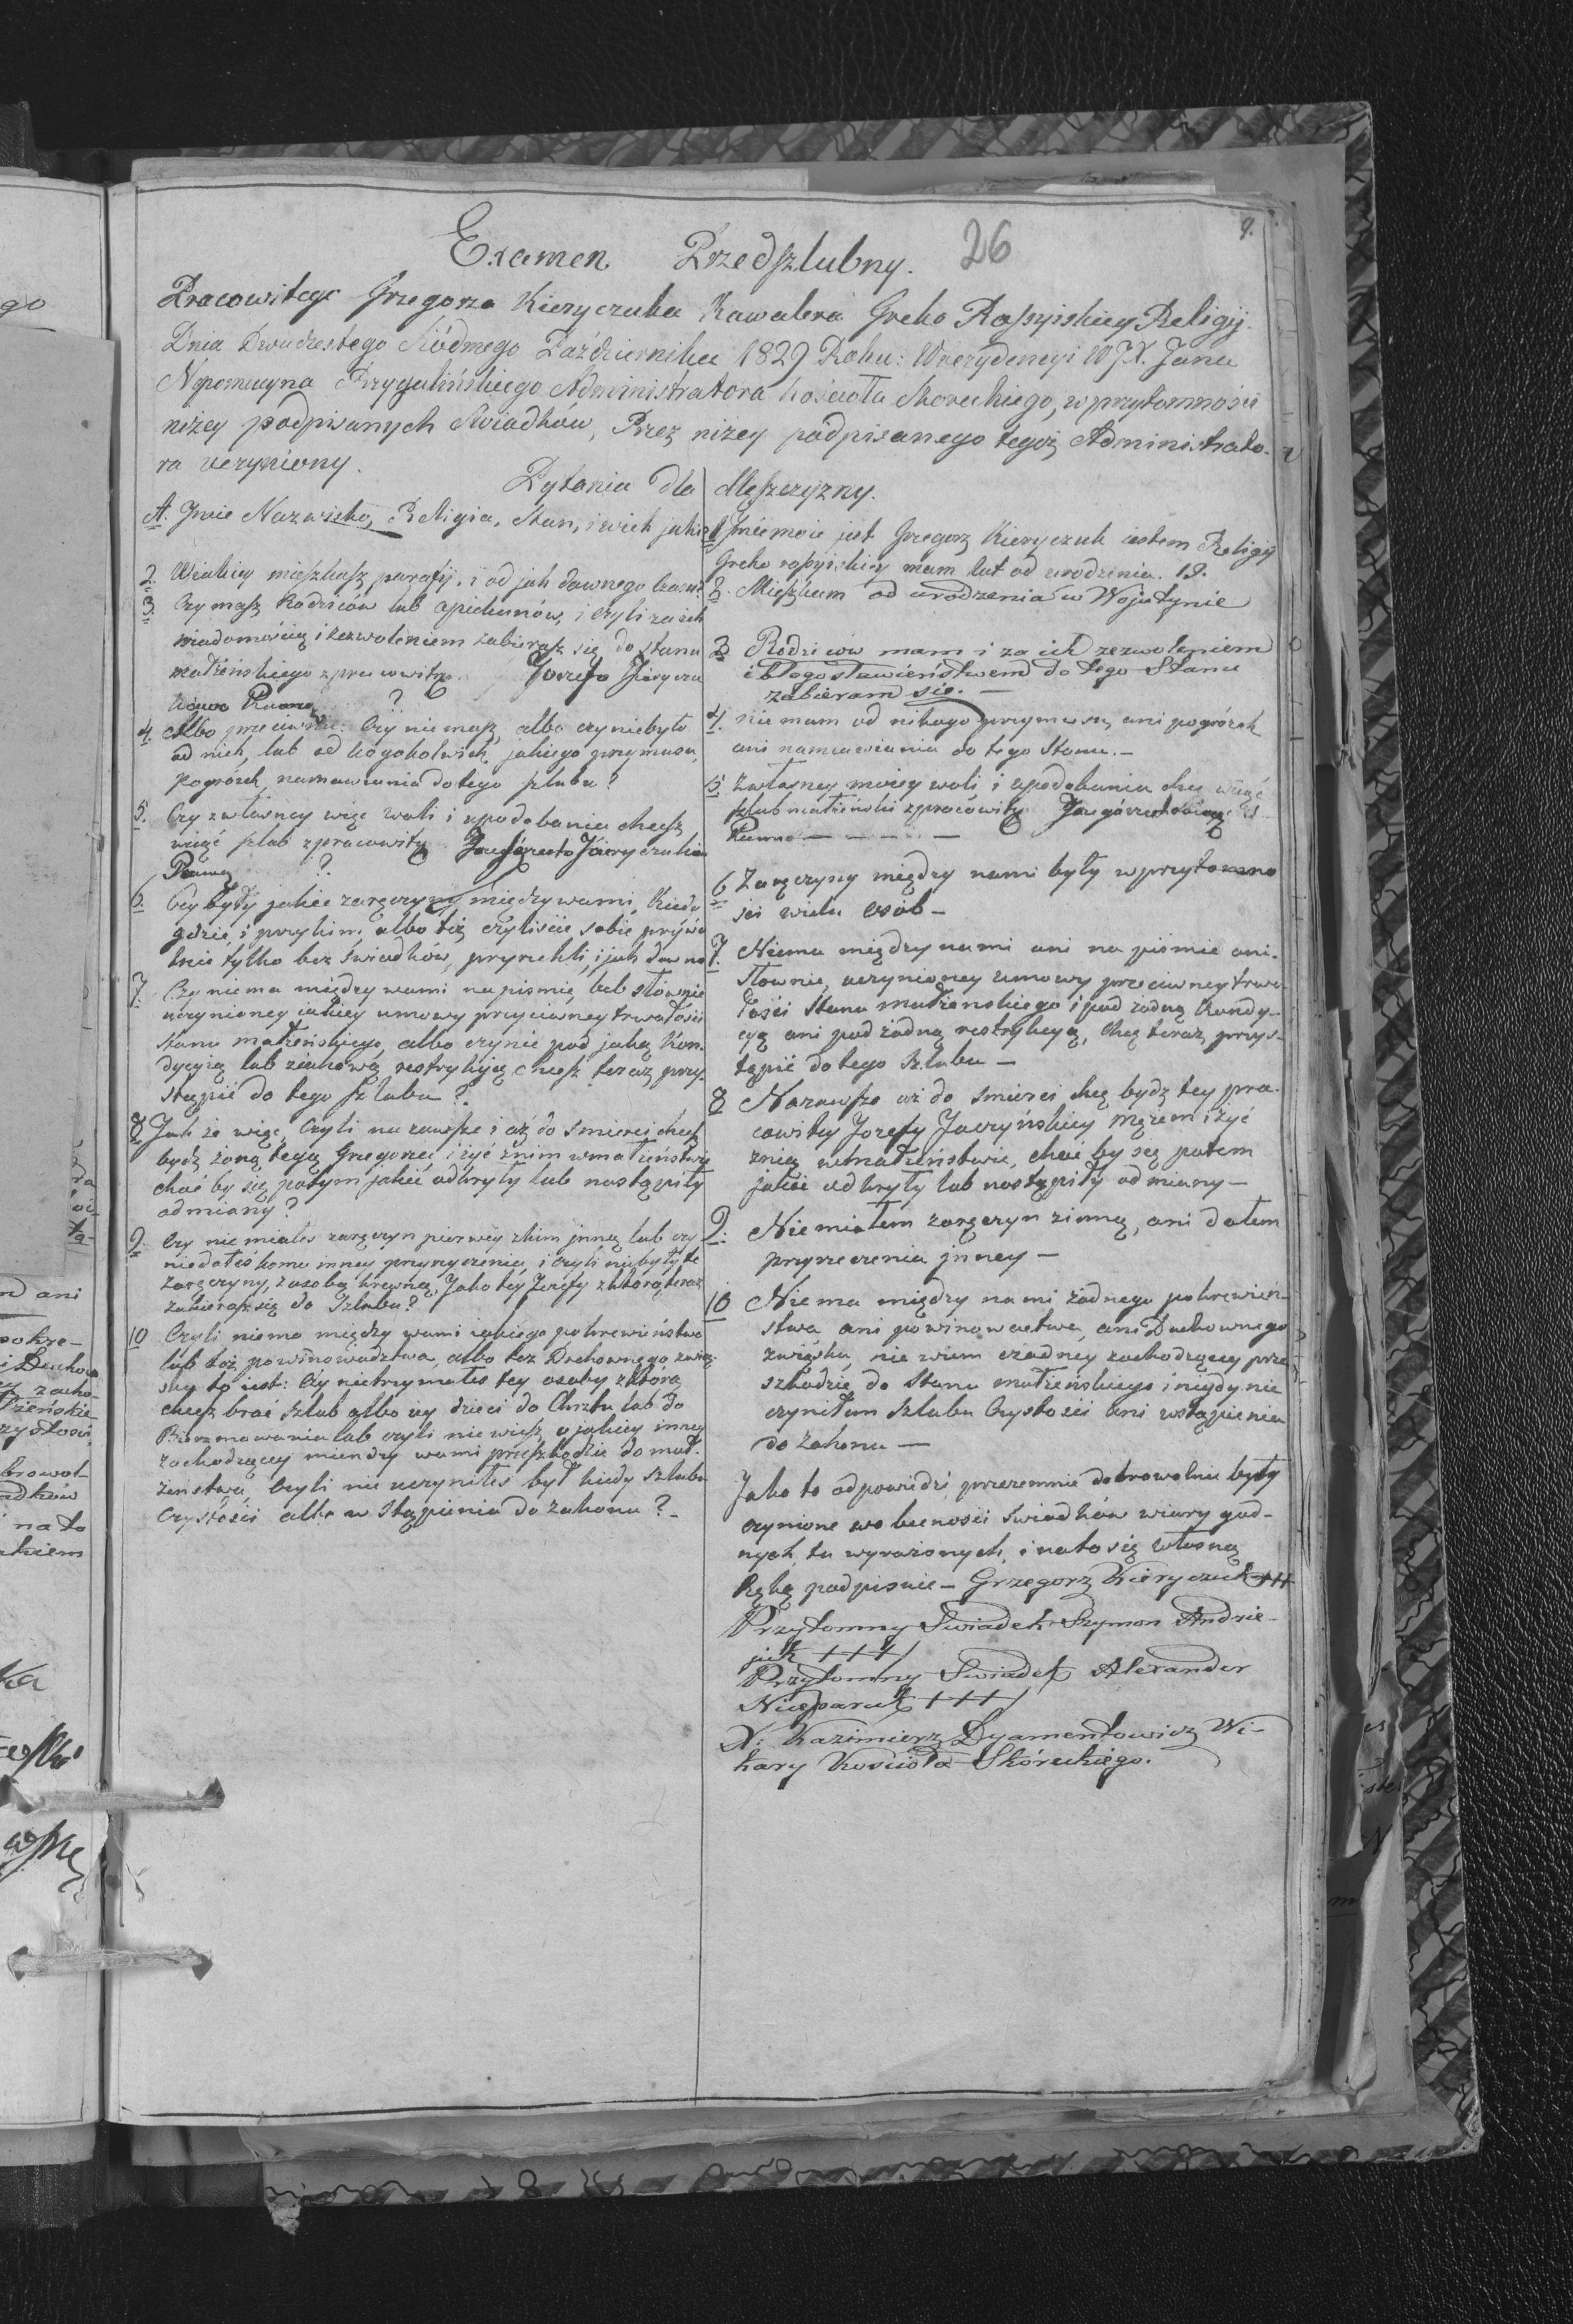 Examen Przedszlubny. 26
9.
Pracowitego Grzegorza Kieryczuka Kawalera Greko Rossyiskiey Religij.
Dnia Dwudzestego Siódmego Października 1829 Roku: W rezydencyi WJX. Jana
Nepomucyna Przygalińskiego Administratora kościoła Skoreckiego, w przytomności
niżey podpisanych Swiadków, Przez niżey podpisanego tegoż Administrato-
ra uczyniony.
Pytania dla Męszczyzny.
A. Jmie Nazwisko, Religia, Stan, i wiek jaki?
2. W iakiey mieszkasz parafij, i od jak dawnego czasu?
3. Czy masz Rodziców lub opiekunów, i czyli za ich
wiadomością i zezwoleniem zabierasz się do stanu
małżeńskiego z pracowitą Jozefa
Panną ?
4. Albo przeciwnie: Czy nie masz, albo czy niebyło
od nich, lub od kogokolwiek jakiego przymusu,
pogrózek, namawiania do tego szlubu?
5. Czy z własney więc woli i upodobania chcesz
wziąć szlub z pracowitą
Panną ?
6. Czy były jakie zaręczyny między wami, kiedy
gdzie, i przy kim, albo też czyliście sobie prywa
tnie tylko bez świadków, przyrzekli, i jak dawno
7. Czy niema między wami na pismie, lub słownie
uczynioney iakiey umowy przeciwney trwałości
stanu małżeńskiego, albo czy nie pod jaką Kon-
dycyią lub ziakową restrykiją chcesz teraz przy-
stąpić do tego szlubu?
8 Jak że więc, Czyli na zawsze i aż do smierci chcesz
bydź żoną tegą Grzegorza i żyć znim w małżeństwie
choć by się potym jakieś odkryły lub nastąpiły
odmiany?
9. Czy nie miałes zaręczyn pierwey z kim inną lub czy
niedałeś komu inney przyrzeczenia, i czyli niebyły te
zaręczyny, z osobą krewną, Jako tey Jozefy z którą teraz
zabierasz się do Szlubu?
10 Czyli niema między wami iakiego pokrewieństwa
lub toż powinowadztwa, albo też Duchownego związ-
sku to iest: Czy nietrzymałes tey osoby z którą
chcesz brać szlub albo iey dzieci do Chrztu lub do
Bierzmowania lub czyli nie wiesz o jakiey inney
zachodzącey miendzy wami przeszkodzie do mał-
żeństwa, czyli nie uczyniłes był kiedy szlubu
Czystości albo w stąpienia do zakonu?
1 Jmie moie jest Grzegorz Kieryczuk iestem Religij
Greko rossyiskiey mam lat od urodzenia. 19.
2. Mieszkam od urodzenia w Wojutynie
3 Rodziców mam i za ich zezwoleniem
i błogosławieństwem do tego Stanu
zabieram się.
4. nie mam od nikogo przymusu, ani pogrózek
ani namawiania do tego Stanu.
5 z własney moiey woli i upodobania chcę wziąć
szlub małżeński z pracowitą
Panną
6 Zaręczyny między nami były w przytomno
ści wielu osób
7. Niema między nami ani na piśmie ani
słownie, uczynioney umowy przeciwney trwa-
łości stanu małżeńskiego i pod żadną kondy-
cyą ani pod żadną restrykcyą, chcę teraz przys-
tąpić do tego szlubu
8 Nazawsze aż do smierci chcę bydź tey pra-
cowitey Jozefy Jaczyńskiey Mężem i żyć
znią w małżeństwie, choć by się potem
jakie odkryły lub nastąpiły odmiany
9. Niemiałem zaręczyn z inną, ani dałem
przyrzeczenia inney
10 Niema między nami żadnego pokrewień-
stwa, ani powinowactwa, ani Duchownego
związku, nie wiem o żadney zachodzącey prze
szkodzie do Stanu małżeńskiego i nigdy nie
czyniłem szlubu Czystości ani wstąpienia
do Zakonu
Jako te odpowiedzi przezemnie dobrowolnie były
czynione w obecności świadków wiary god-
nych, tu wyrażonych, i na to się własną
Ręką podpisuie - Grzegorz Kieryczuk +++
Przytomny Swiadek Szymon Andrie-
juk +++
Przytomny Swiadek Alexander
Niczparuk +++
X: Kazimierz Dyamentowicz Wi-
kary Kościoła Skóreckiego.